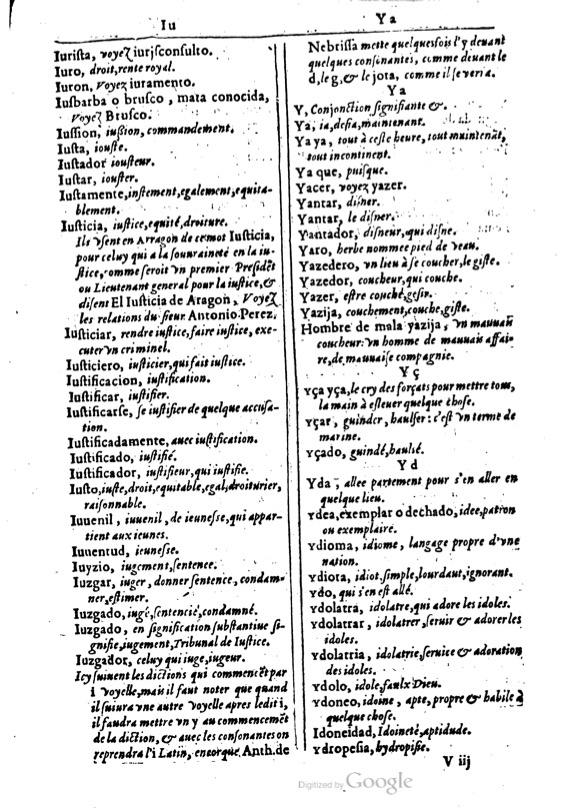 Iu
Iurista, voyez iurisconsulto.
Iuro, droit, rente royal.
Iuron, Voyez iuramento.
Iusbarba o brusco, mata conocida,
Voyez Brusco.
Iussion, iussion, commandement.
Iusta, iouste.
Iustador iousteur.
Iustar, iouster.
Iustamente, iustement, egalement, equita-
blement.
Iusticia, iustice, equité, droiture.
Ils vsent en Arragon de ce mot Iusticia,
pour celuy qui a la souuraineté en la iu-
stice, comme seroit vn premier Presidẽt
ou Lieutenant general pour la iustice, &
disent El Iusticia de Aragon, Voyez
les relations du sieur Antonio Perez.
Iusticiar, rendre iustice, faire iustice, exe-
cuter vn criminel.
Iusticiero, iusticier, qui fait iustice.
Iustificacion, iustification.
Iustificar, iustifier.
Iustificarse, se iustifier de quelque accusa-
tion.
Iustificadamente, auec iustification.
Iustificado, iustifié.
Iustificador, iustifieur, qui iustifie.
Iusto, iuste, droit, equitable, egal, droiturier,
raisonnable.
Iuuenil, iuuenil, de ieunesse, qui appar-
tient aux ieunes.
Iuuentud, ieunesse.
Iuyzio, iugement, sentence.
Iuzgar, iuger, donner sentence, condam-
ner, estimer.
Iuzgado, iugé, sentencié, condamné.
Iuzgado, en signification substantiue si-
gnifie, iugement, Tribunal de Iustice.
Iuzgador, celuy qui iuge, iugeur.
Icy suiuent les dictions qui commencẽt par
i voyelle, mais il faut noter que quand
il suiura vne autre voyelle apres ledit i,
il faudra mettre vn y au commencemẽt
de la diction, & auec les consonantes on
reprendra l'i Latin, encorque Anth. de
Ya
Nebrissa mette quelquesfois l'y deuant
quelques consinantes, comme deuant le
d, le g, & le jota, comme il se veria.
Ya
Y, Conjonction signifiante &.
Ya, ia, desia, maintenant.
Ya ya, tout à ceste heure, tout maintenãt,
tout incontinent.
Ya que, puisque.
Yacer, voyez yazer.
Yantar, disner.
Yantar, le disner.
Yantador, disneur, qui disne.
Yaro, herbe nommee pied de veau.
Yazedero, vn lieu à se coucher, le giste.
Yazedor, coucheur, qui couche.
Yazer, estre couché, gesir.
Yazija, couchement, couche, giste.
Hombre de mala yazija, vn mauuais
coucheur: vn homme de mauuais affai-
re, de mauuaise compagnie.
Y ç
Yça yça, le cry des forçats pour mettre tous,
la main à esleuer quelque chose.
Yçar, guinder, haulser: c'est vn terme de
marine.
Yçado, guindé, haulsé.
Y d
Yda, allee partement pour s'en aller en
quelque lieu.
Ydea, exemplar o dechado, idee, patron
ou exemplaire.
Ydioma, idiome, langage propre d'vne
nation.
Ydiota, idiot, simple, lourdaut, ignorant.
Ydo, qui s'en est allé.
Ydolatra, idolatre, qui adore les idoles.
Ydolatrar, idolatrer, seruir & adorer les
idoles.
Ydolatria, idolatrie, seruice & adoration
des idoles.
Ydolo, idole, faulx Dieu.
Ydoneo, idoine, apte, propre & habile à
quelque chose.
Idoneidad, Idoineté, aptidude.
Ydropesia, hydropisie.
V iij
Digitized by Google